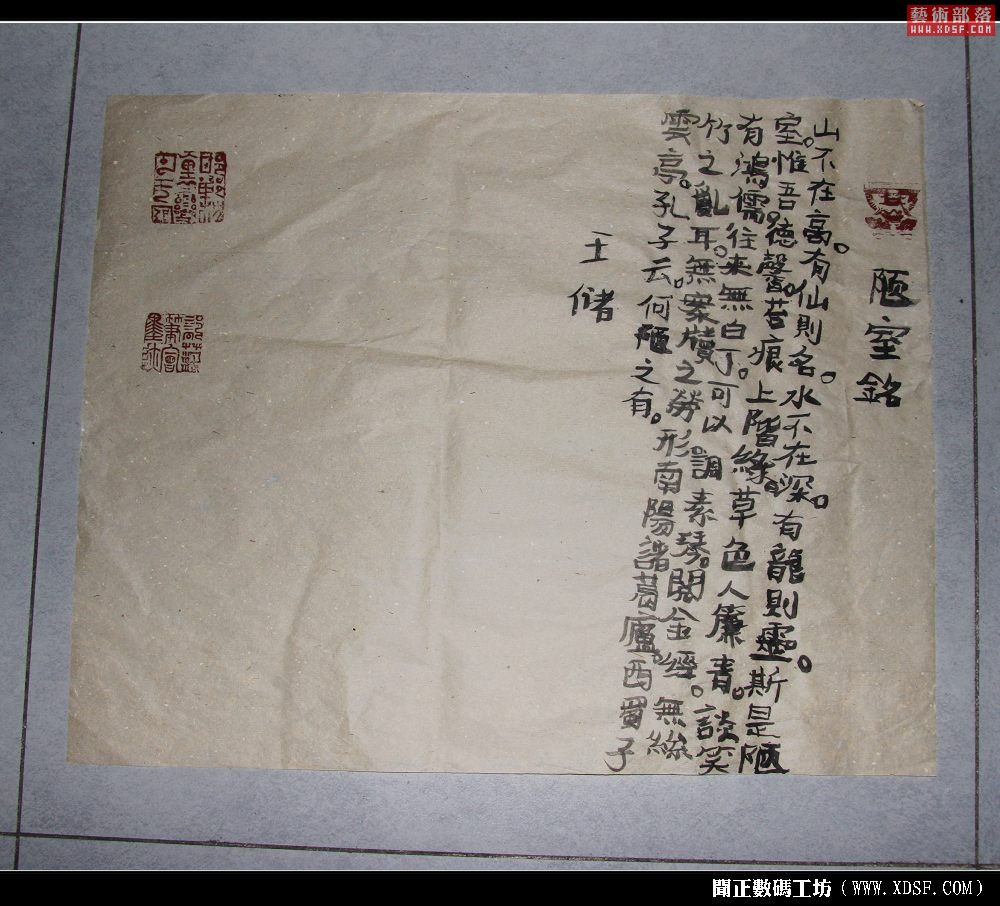 藝術部落
WWW.XDSF.COM
陋室銘
山不在高。有仙則名。水不在深。有龍則靈。斯是陋
室。惟吾德馨。苔痕上階緣。草色人簾青。談笑
有鴻儒。往来無白丁。可以調素琴。閱金經。無絲
竹之亂耳。無案牘之勞形。南陽諸葛廬。西蜀子
雲亭。孔子云。何陋之有。
王储
聞正數碼工坊（WWW.XDSF.COM）